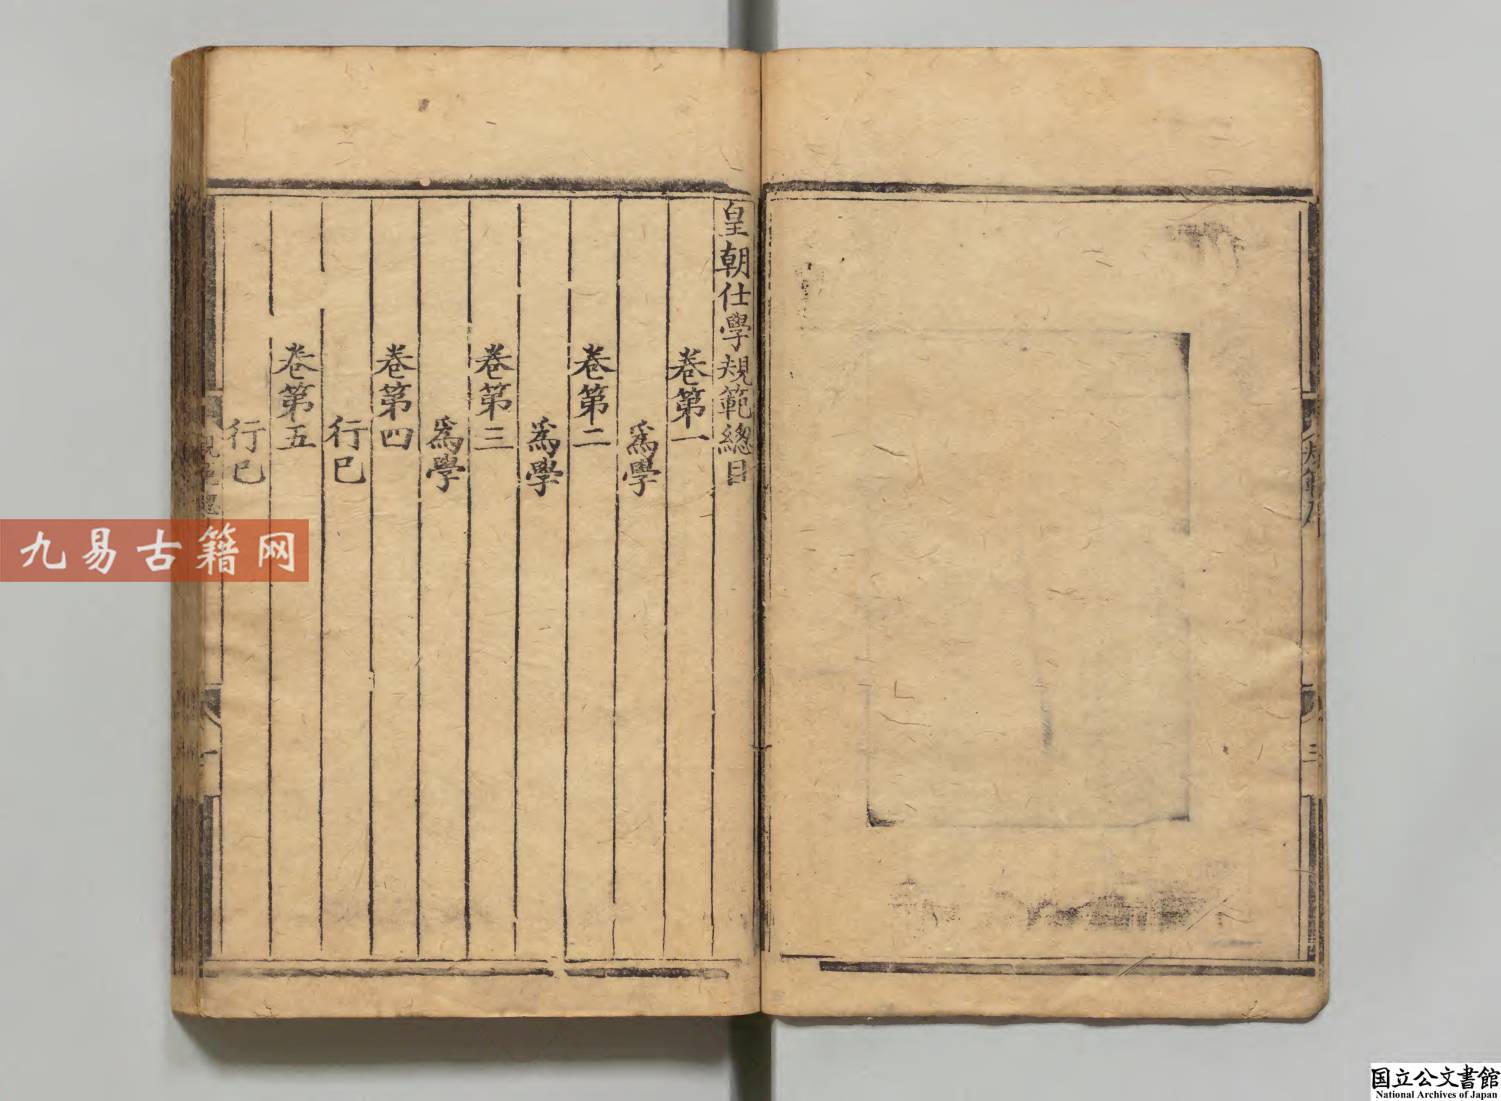 皇朝仕學規範總目
卷第一
爲學
卷第二
爲學
卷第三
爲學
卷第四
行巳
卷第五
行巳
九易古籍网
国立公文書館
National Archives of Japan